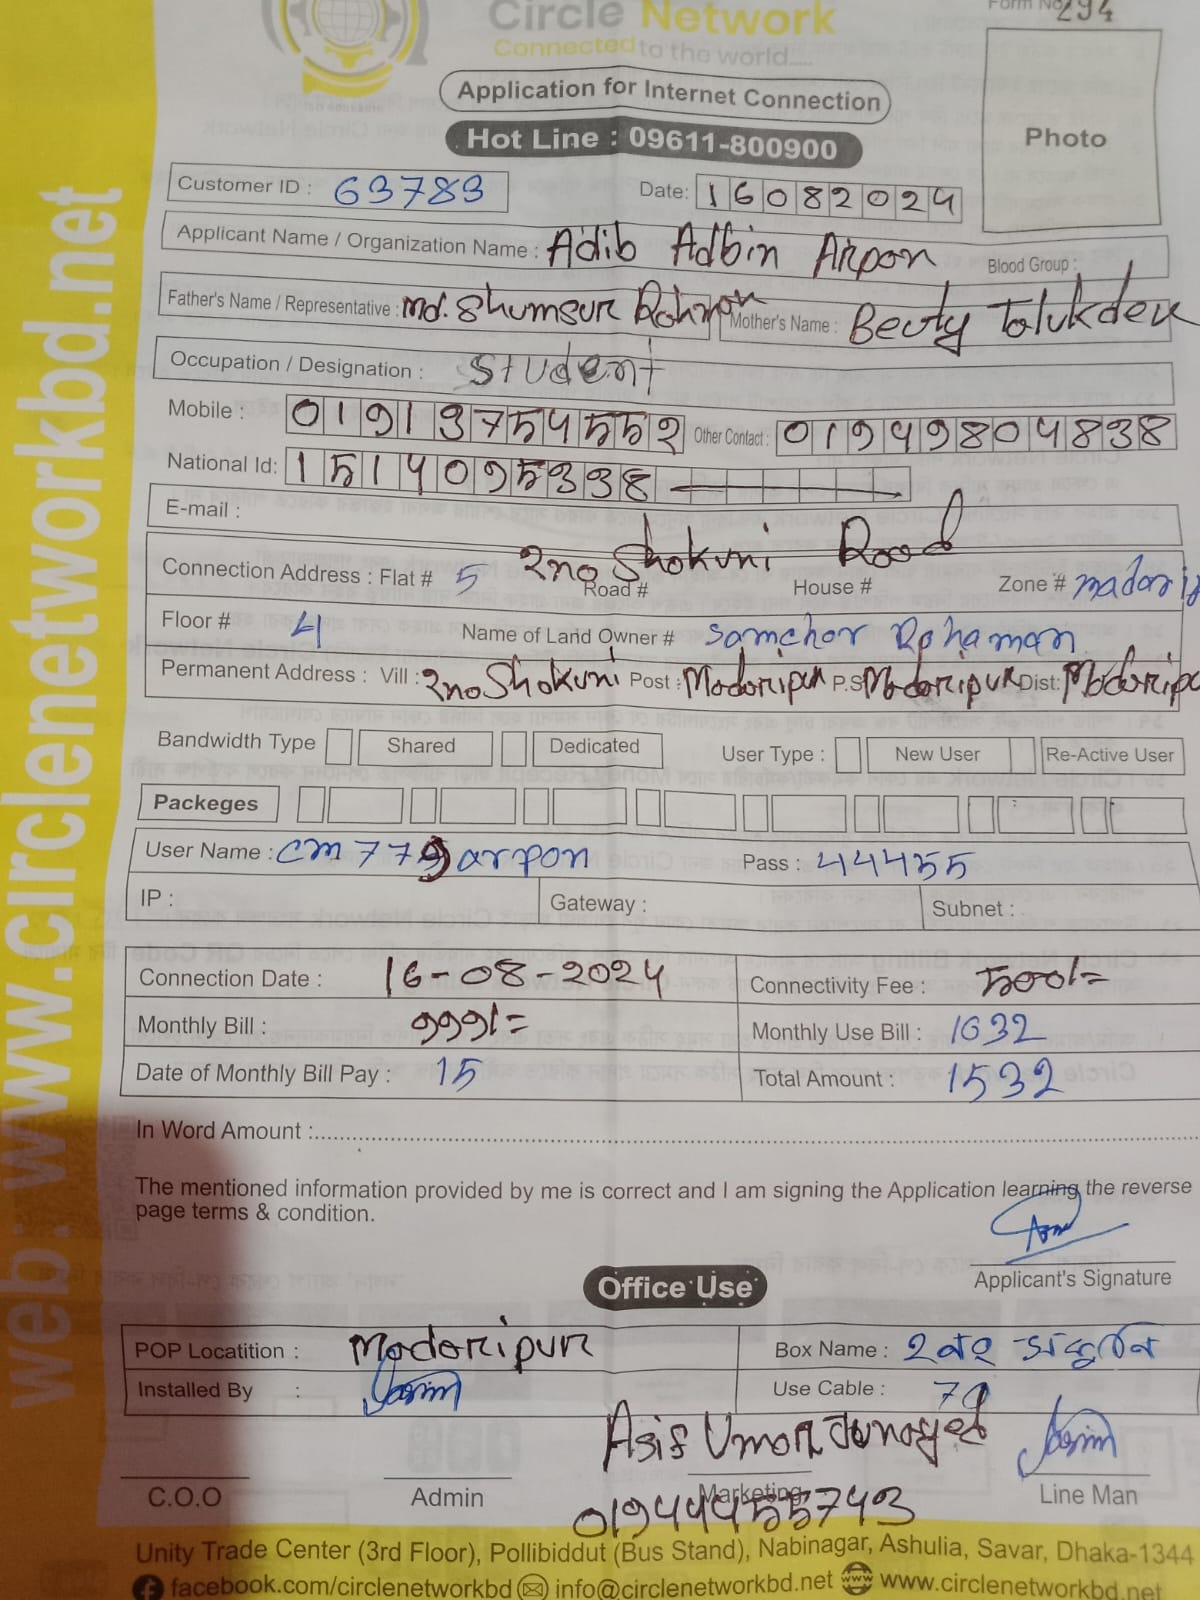 Circle Network
Form No 294
Connected to the world.....
Application for Internet Connection
Hot Line : 09611-800900
Photo
Customer ID : 63783
Date: 16082024
Applicant Name / Organization Name : Adib Adbin Arpon Blood Group :
Father's Name / Representative : Md. Shumsur Rahman Mother's Name : Beuty Talukder
Occupation / Designation : Student
Mobile : 01913754552 Other Contact : 01949804838
National Id: 1514095338
E-mail :
Connection Address : Flat # 5 2no Shokuni Road Road # House # Zone # madarip
Floor # 4 Name of Land Owner # Samchor Rohaman
Permanent Address : Vill : 2no Shokuni Post : Madaripur P.S Madaripur Dist: Madaripu
Bandwidth Type Shared Dedicated User Type : New User Re-Active User
Packeges
User Name : cm779arpon Pass : 44455
IP : Gateway : Subnet :
Connection Date : 16-08-2024 Connectivity Fee : 500/=
Monthly Bill : 999/= Monthly Use Bill : 1032
Date of Monthly Bill Pay : 15 Total Amount : 1532
In Word Amount :
The mentioned information provided by me is correct and I am signing the Application learning the reverse
page terms & condition.
Applicant's Signature
Office Use
POP Locatition : Madaripur Box Name : ২নং শকুনি
Installed By : Use Cable : 70
Asif Umor Junayed
C.O.O Admin Marketing Line Man
01944455743
Unity Trade Center (3rd Floor), Pollibiddut (Bus Stand), Nabinagar, Ashulia, Savar, Dhaka-1344
facebook.com/circlenetworkbd info@circlenetworkbd.net www.circlenetworkbd.net
web: www.circlenetworkbd.net